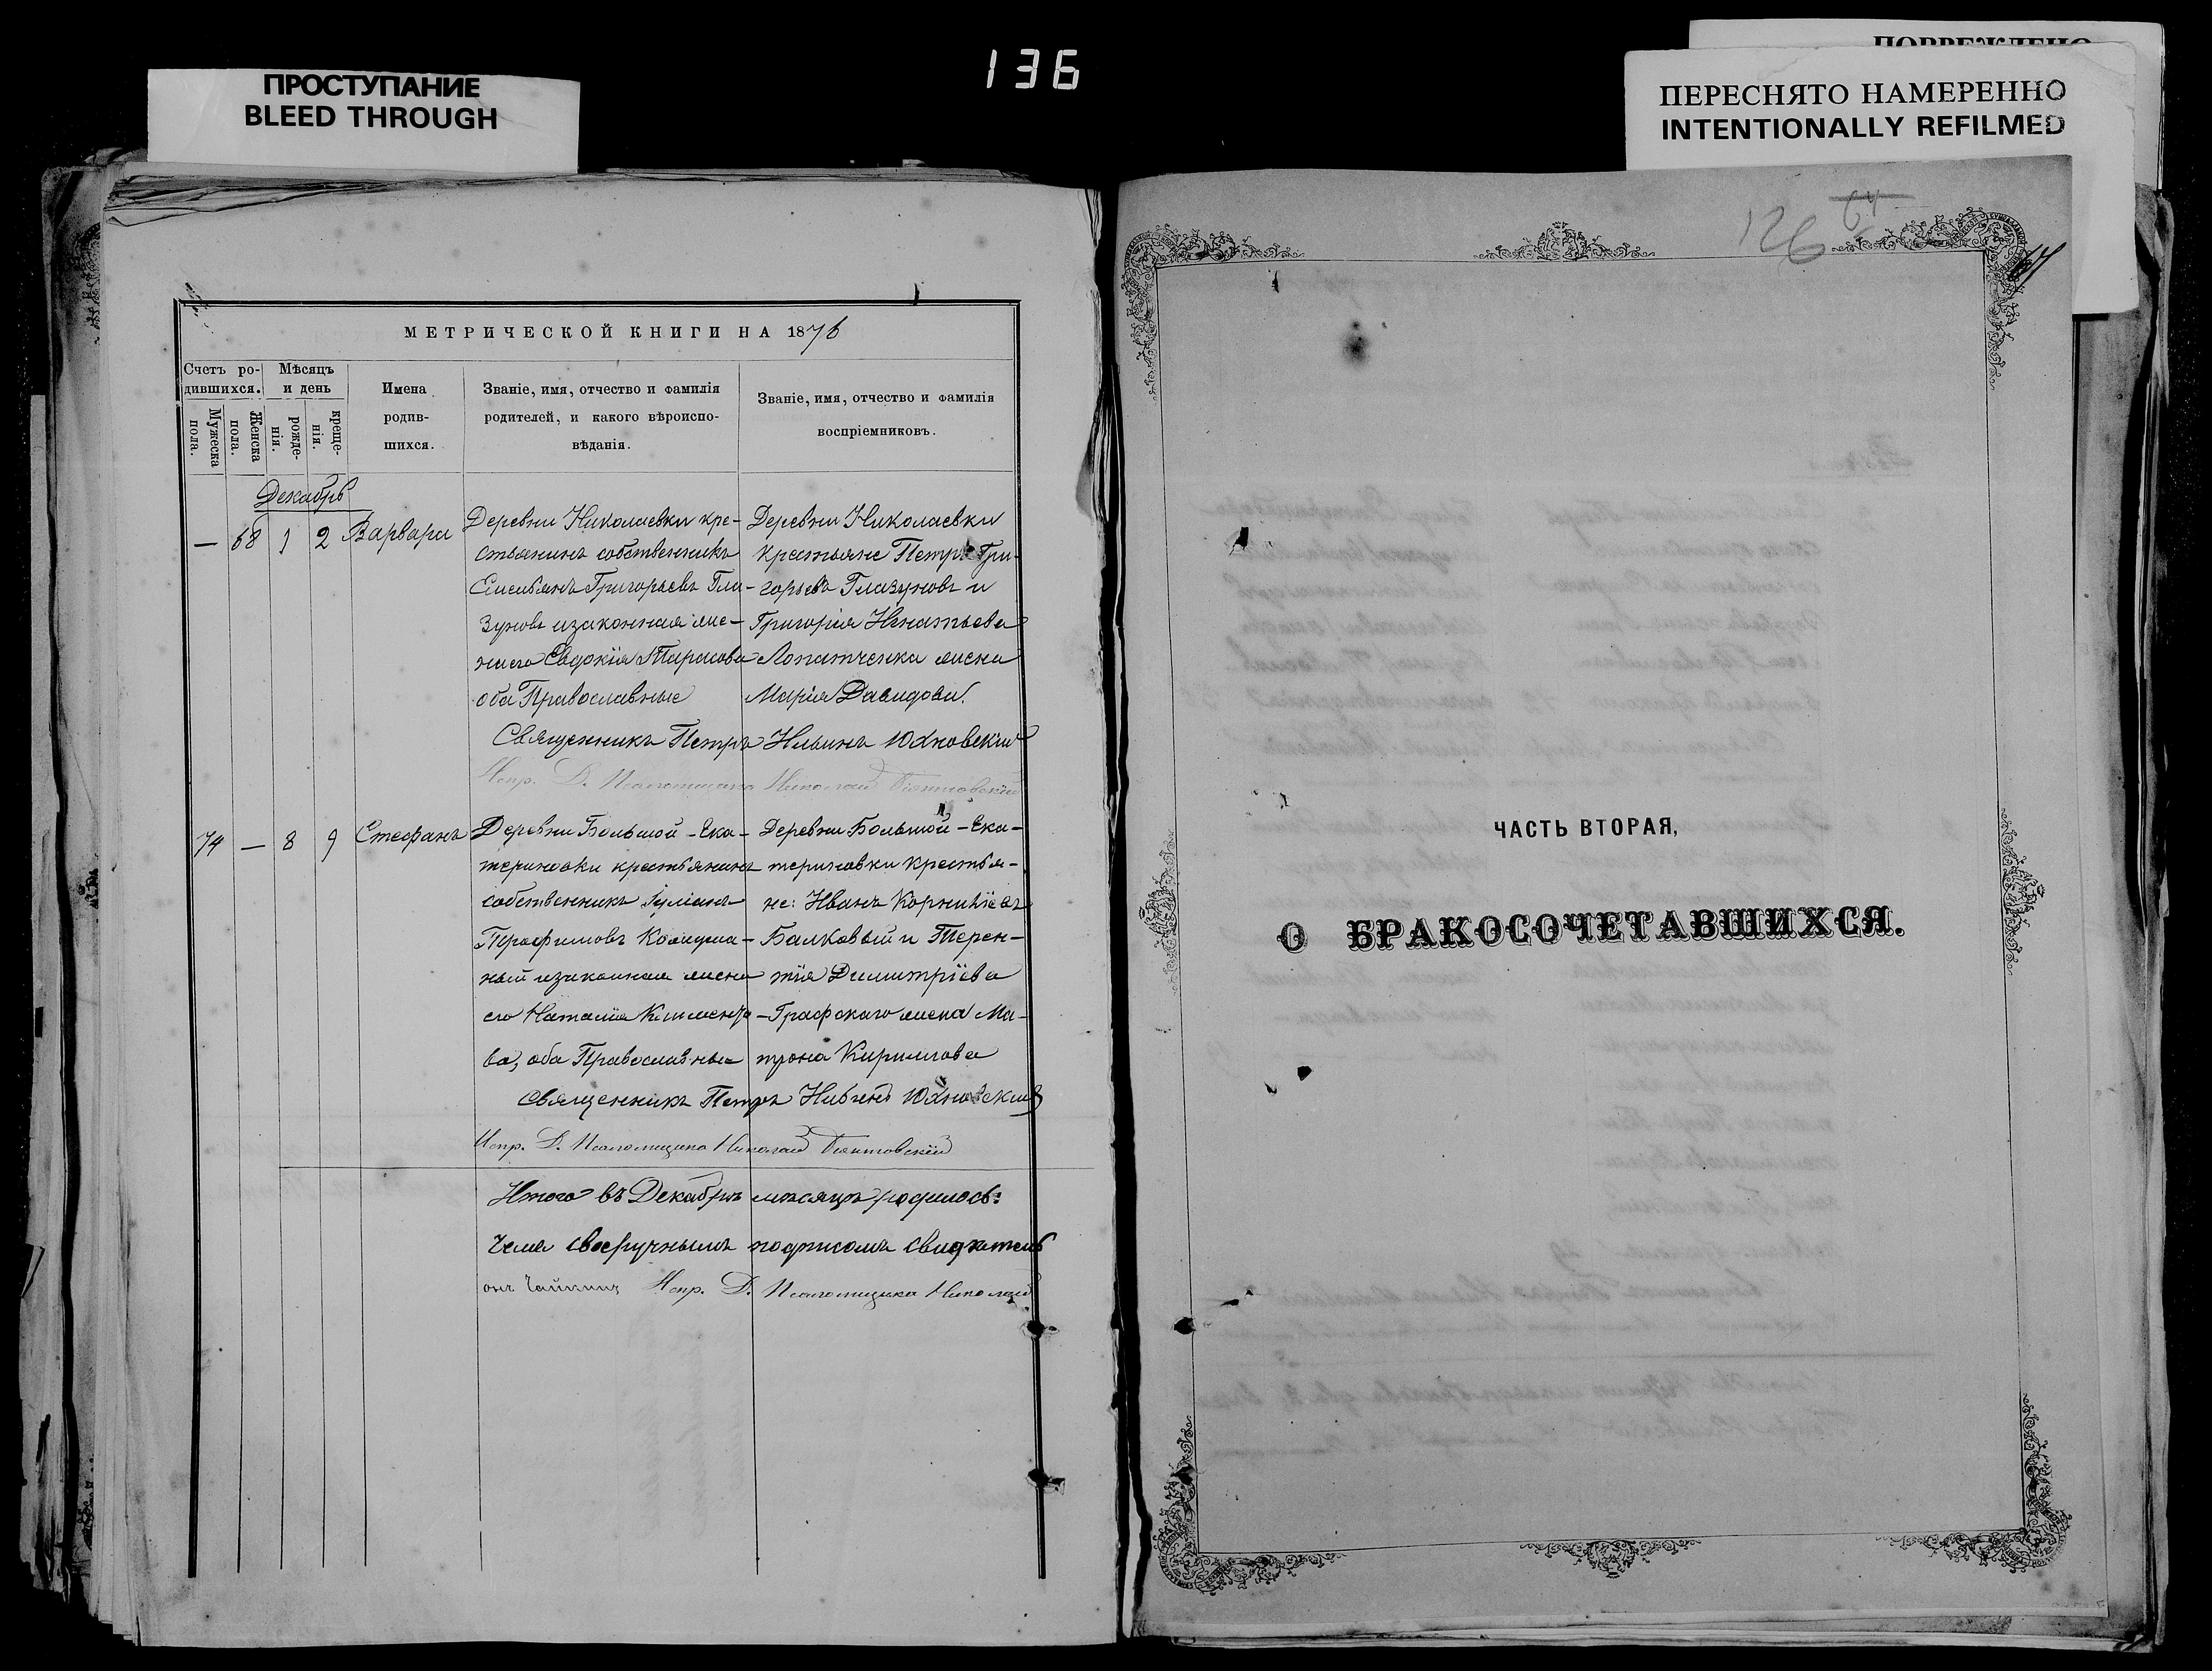 136
ПРОСТУПАНИЕ
BLEED THROUGH
ПОВРЕЖДЕНО
ПЕРЕСНЯТО НАМЕРЕННО
INTENTIONALLY REFILMED
МЕТРИЧЕСКОЙ КНИГИ НА 1876
Счетъ ро-
дившихся.
Мужеска
пола.
Женска
пола.
Мѣсяцъ
и день
рожде-
нія.
креще-
нія.
Имена
родив-
шихся.
Званіе, имя, отчество и фамилія
родителей, и какого вѣроиспо-
вѣданія.
Званіе, имя, отчество и фамилія
воспріемниковъ.
Декабрь
— 68 1 2 Варвара
Деревни Николаевки кре-
стьянинъ собственникъ
Емельянъ Григорьевъ Гла-
зуновъ и законная же-
на его Евдокія Тарасова
оба Православные
Деревни Николаевки
крестьяне Петръ Гри-
горьевъ Глазуновъ и
Григорія Игнатьева
Лопатченка жена
Марія Давидова.
Священникъ Петръ Ильинъ Юхновскій
Испр. Д. Псаломщика Николай
74 — 8 9 Стефанъ
Деревни Большой-Ека-
териновки крестьянинъ
собственникъ Іуліанъ
Трофимовъ
ный и законная жена
его Наталія Климента-
ва, оба Православные
Деревни Большой-Ека-
териновки крестья-
не: Иванъ Корниліевъ
Балковый и Терен-
тія Димитріева
Графскаго жена Ма-
трона Кирилова
Священникъ Петръ Ильинъ Юхновскій
Испр. Д. Псаломщика Николай
Итого въ Декабрѣ мѣсяцѣ родилось:
Чема своеручнымъ подписомъ свидѣтель
Испр. Д. Псаломщика Николай
126
64
ЧАСТЬ ВТОРАЯ,
О БРАКОСОЧЕТАВШИХСЯ.